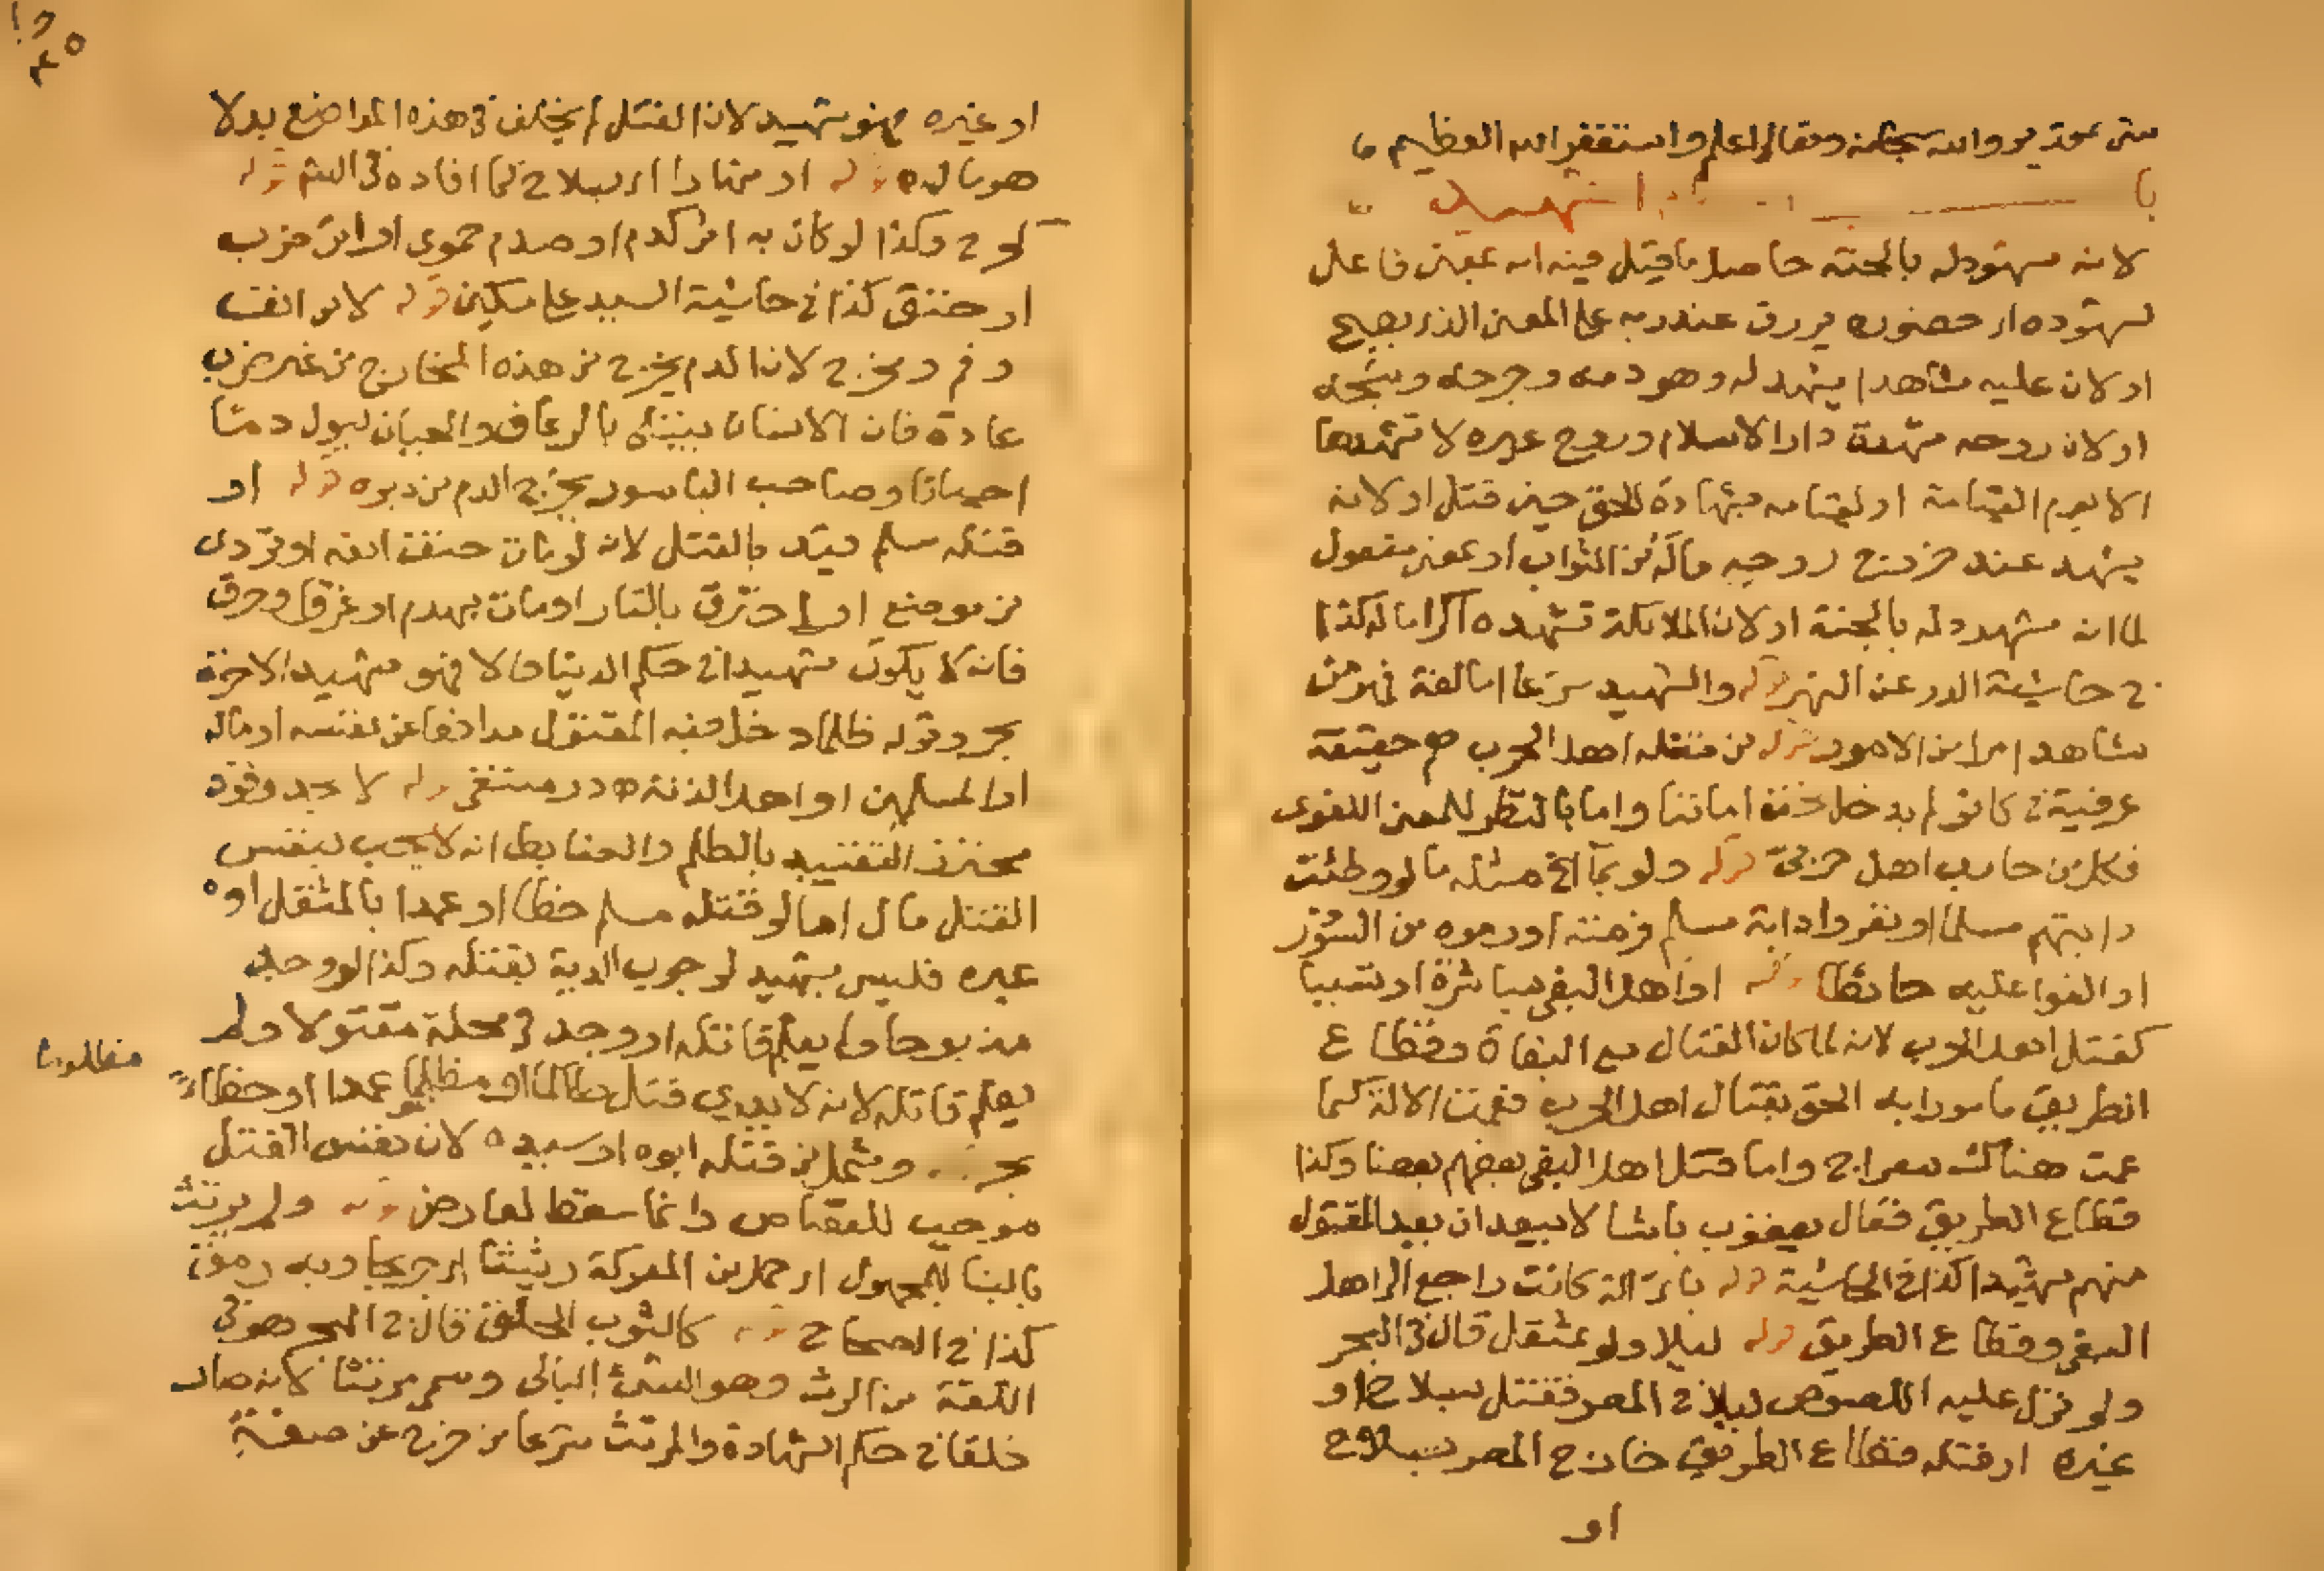 والله سبحانه وتعالى اعلم واستغفر الله العظيم
باب الشهيد
لانه مشهود له بالجنة حاصل ما قيل فيه انه بمعنى فاعل
لشهوده اى حضوره يرزق عند ربه على المعنى الذى يصح
او لان عليه شاهدا يشهد له وهو دمه وجرحه وشجه
او لان روحه شهدت دار الاسلام وروح غيره لا تشهدها
الا يوم القيامة او لقيامه بشهادة الحق حين قتل او لانه
يشهد عند خروج روحه ماله من الثواب او بمعنى مفعول
لما انه مشهود له بالجنة او لان الملائكة تشهده اكراما له كذا
فى حاشية الدر عن النهر قوله والشهيد شرعا اما لغة فهو من
شاهد امرا من الامور قوله من قتله اهل الحرب هم حقيقة
عرفية فى كانو لم يدخل تحت اماننا واما بالنظر للمعنى اللغوى
فكل من حارب اهل حرب قوله ولو تسببا مثله ما لو وطئت
دابتهم مسلما او نفروا دابة مسلم فرمته او رموه من السور
او القوا عليه حائطا قوله او اهل البغى مباشرة او تسببا
كقتل اهل الحرب لانه لما كان القتال مع البغاة وقطاع
الطريق مامورا به الحق بقتال اهل الحرب فعمت الالة كما
عمت هناك معراج واما قتل اهل البغى بعضهم بعضا وكذا
قطاع الطريق فقال يعقوب باشا لا يبعد ان يعد المقتول
منهم شهيدا كذا فى الحاشية قوله باى الة كانت راجع الى اهل
البغى وقطاع الطريق قوله ليلا ولو بمثقل قال فى البحر
ولو نزل عليه اللصوص ليلا فى المصر فقتل بسلاح او
غيره او قتله قطاع الطريق خارج المصر بسلاح
او
او غيره فهو شهيد لان القتل لم يخلف فى هذه المواضع بدلا
هو مال قوله او نهارا اى بسلاح كما افاده فى قوله
كجرح وكذا لو كان به اثر كدم او صدم حموى او اثر ضرب
او خنق كذا فى حاشية السيد على مسكين قوله لا من انف
وفم ومخرج لان الدم يخرج من هذه المخارج من غير ضرب
عادة فان الانسان يبتلى بالرعاف والجبان يبول دما
احيانا وصاحب الباسور يخرج الدم من دبره قوله او
قتله مسلم قيد بالقتل لانه لو مات حتف انفه او تردى
من موضع او احترق بالنار او مات بهدم او غرق وحرق
فانه لا يكون شهيدا فى حكم الدنيا والا فهو شهيد الاخرة
بحر وقوله ظلما دخل فيه المقتول مدافعا عن نفسه او ماله
او المسلمين او اهل الذمة در منتقى قوله لا بحد وقود
محترز التقييد بالظلم والحنابطه انه لا يجب بنفس
القتل مال اما لو قتله مسلم خطا او عمدا بالمثقل او
غيره فليس بشهيد لوجوب الدية بقتله وكذا لو وجد
مذبوحا ولم يعلم قاتله او وجد فى محلة مقتولا ولم
يعلم قاتله لانه لا يدرى قتل ظالما او مظلوما عمدا او خطا
مظلوما
بحر وشمل من قتله ابوه او سيده لان نفس القتل
موجب للقصاص وانما سقط لعارض قوله ولم يرتث
بالبنا للمجهول اى حمل من المعركة رثيثا اى جريحا وبه رمق
كذا فى الصحاح قوله كالثوب الخلق قال فى البحر هو فى
اللغة من الرث وهو الشئ البالى وسمى مرتثا لانه صار
خلقا فى حكم الشهادة والمرتث شرعا من خرج عن صفة